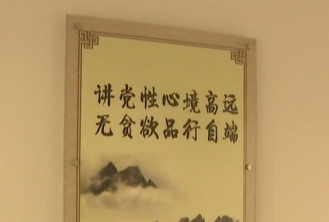 讲党性心境高远
无贪欲品行自端